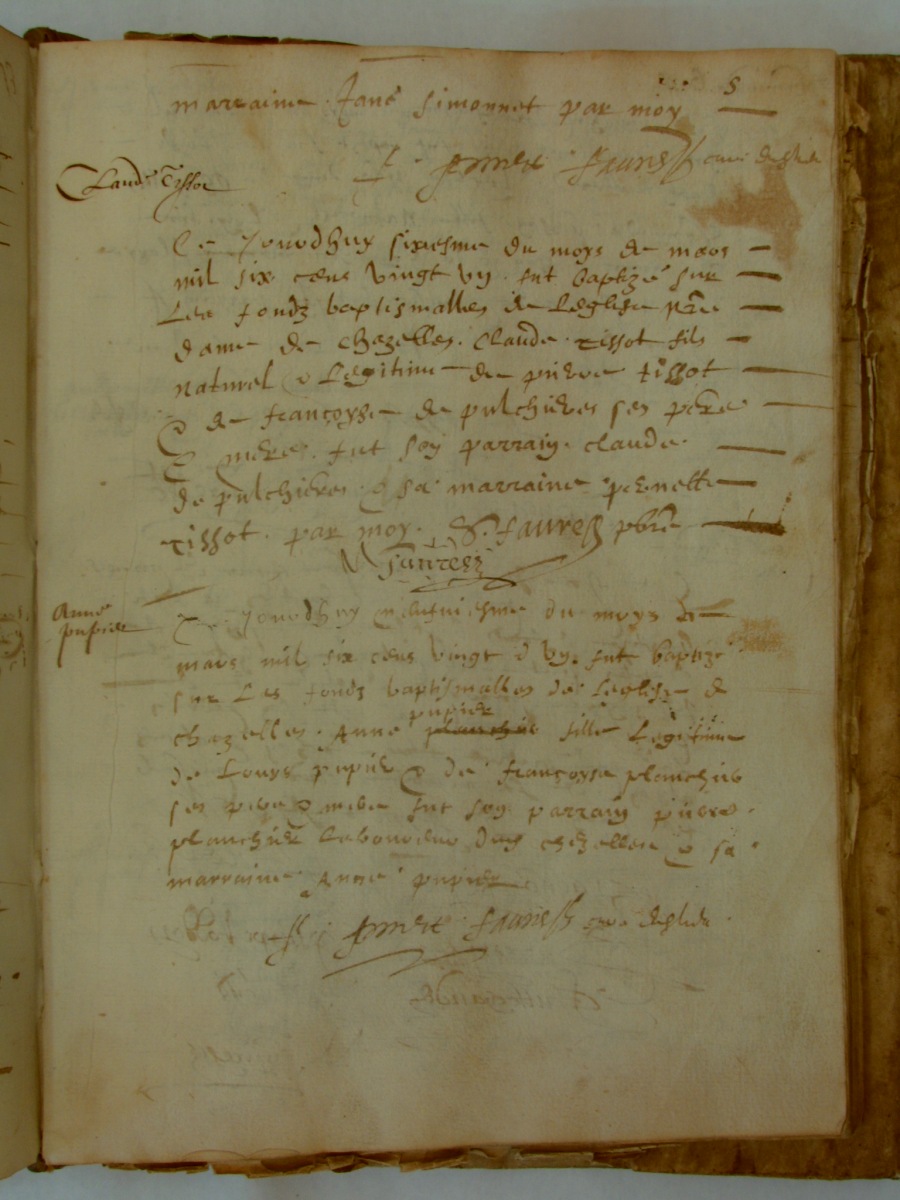 5
marraine Jane simonnet par moy
Claude Tissot
Ce Jourdhuy sixiesme du moys de mars
mil six cens vingt vij fut baptizé sur
Les fondz baptismalles de Leglise nre
dame de chazelles. Claude tissot fils
naturel & Legitime de pierre tissot
& de françoyse de pulchieres ses pere
& mere. fut soy parrain claude
de pulchieres & sa marraine pernette
tissot. par moy. faures pbre
faures
Anne
pupier
Ce Jourdhuy du moys de
mars mil six cens vingt & vij. fut baptize
sur Les fondz baptismalles de Leglise de
pupier
chazelles. Anne planchie fille Legitime
de Louys pupier & de françoyse planchier
ses pere & mere fut soy parrain pierre
planchier Laboureur de chazelles & sa
marraine Anne pupier
faures